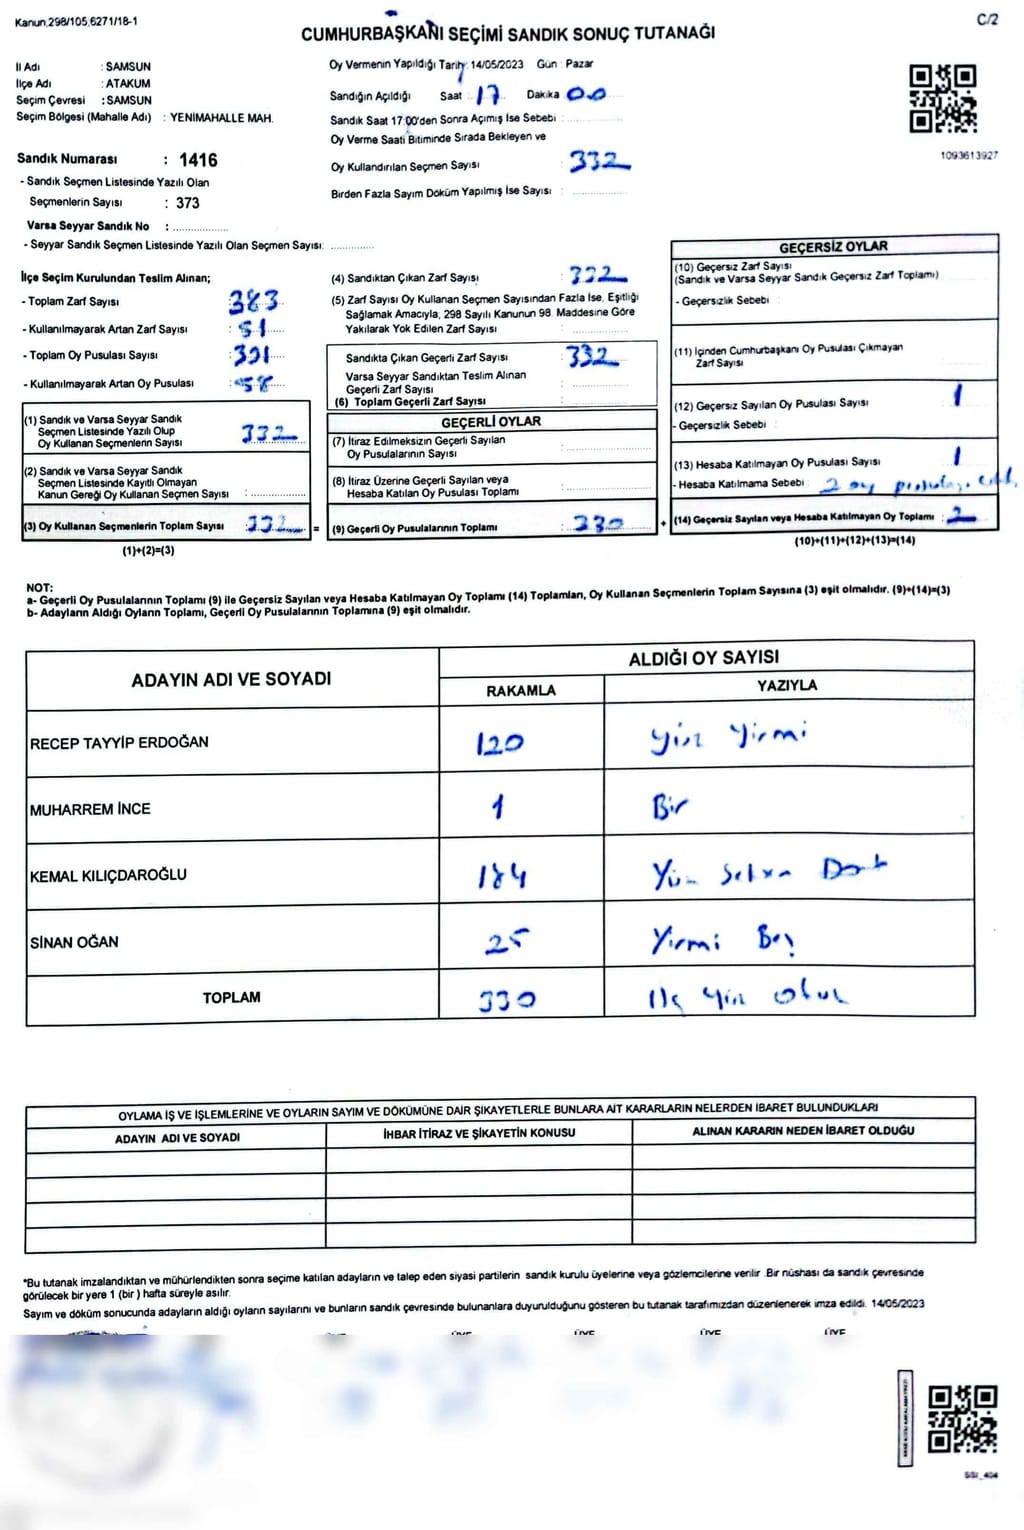 Kanun,298/105,6271/18-1
C/2
CUMHURBAŞKANI SEÇİMİ SANDIK SONUÇ TUTANAĞI
İl Adı : SAMSUN
İlçe Adı : ATAKUM
Seçim Çevresi : SAMSUN
Seçim Bölgesi (Mahalle Adı) : YENİMAHALLE MAH.
Sandık Numarası : 1416
- Sandık Seçmen Listesinde Yazılı Olan
Seçmenlerin Sayısı : 373
Varsa Seyyar Sandık No :
- Seyyar Sandık Seçmen Listesinde Yazılı Olan Seçmen Sayısı:
Oy Vermenin Yapıldığı Tarih: 14/05/2023 Gün : Pazar
Sandığın Açıldığı Saat : 17 Dakika 00
Sandık Saat 17:00'den Sonra Açımış İse Sebebi :
Oy Verme Saati Bitiminde Sırada Bekleyen ve
Oy Kullandırılan Seçmen Sayısı : 332
Birden Fazla Sayım Döküm Yapılmış İse Sayısı :
1093613927
İlçe Seçim Kurulundan Teslim Alınan;
- Toplam Zarf Sayısı : 383
- Kullanılmayarak Artan Zarf Sayısı : 51
- Toplam Oy Pusulası Sayısı :
- Kullanılmayarak Artan Oy Pusulası : 58
(1) Sandık ve Varsa Seyyar Sandık
Seçmen Listesinde Yazılı Olup
Oy Kullanan Seçmenlerin Sayısı : 332
(2) Sandık ve Varsa Seyyar Sandık
Seçmen Listesinde Kayıtlı Olmayan
Kanun Gereği Oy Kullanan Seçmen Sayısı :
(3) Oy Kullanan Seçmenlerin Toplam Sayısı : 332 =
(1)+(2)=(3)
(4) Sandıktan Çıkan Zarf Sayısı : 332
(5) Zarf Sayısı Oy Kullanan Seçmen Sayısından Fazla İse, Eşitliği
Sağlamak Amacıyla, 298 Sayılı Kanunun 98. Maddesine Göre
Yakılarak Yok Edilen Zarf Sayısı :
Sandıkta Çıkan Geçerli Zarf Sayısı : 332
Varsa Seyyar Sandıktan Teslim Alınan
Geçerli Zarf Sayısı :
(6) Toplam Geçerli Zarf Sayısı :
GEÇERLİ OYLAR
(7) İtiraz Edilmeksizin Geçerli Sayılan
Oy Pusulalarının Sayısı :
(8) İtiraz Üzerine Geçerli Sayılan veya
Hesaba Katılan Oy Pusulası Toplamı :
(9) Geçerli Oy Pusulalarının Toplamı : 330 +
GEÇERSİZ OYLAR
(10) Geçersiz Zarf Sayısı
(Sandık ve Varsa Seyyar Sandık Geçersiz Zarf Toplamı)
- Geçersizlik Sebebi :
(11) İçinden Cumhurbaşkanı Oy Pusulası Çıkmayan
Zarf Sayısı :
(12) Geçersiz Sayılan Oy Pusulası Sayısı : 1
- Geçersizlik Sebebi :
(13) Hesaba Katılmayan Oy Pusulası Sayısı : 1
- Hesaba Katılmama Sebebi : 2 oy pusulası
(14) Geçersiz Sayılan veya Hesaba Katılmayan Oy Toplamı : 2
(10)+(11)+(12)+(13)=(14)
NOT:
a- Geçerli Oy Pusulalarının Toplamı (9) ile Geçersiz Sayılan veya Hesaba Katılmayan Oy Toplamı (14) Toplamları, Oy Kullanan Seçmenlerin Toplam Sayısına (3) eşit olmalıdır. (9)+(14)=(3)
b- Adayların Aldığı Oyların Toplamı, Geçerli Oy Pusulalarının Toplamına (9) eşit olmalıdır.
ADAYIN ADI VE SOYADI
ALDIĞI OY SAYISI
RAKAMLA YAZIYLA
RECEP TAYYİP ERDOĞAN 120 Yüz Yirmi
MUHARREM İNCE 1 Bir
KEMAL KILIÇDAROĞLU 184 Yüz Seksen Dört
SİNAN OĞAN 25 Yirmi Beş
TOPLAM 330 Üç Yüz Otuz
OYLAMA İŞ VE İŞLEMLERİNE VE OYLARIN SAYIM VE DÖKÜMÜNE DAİR ŞİKAYETLERLE BUNLARA AİT KARARLARIN NELERDEN İBARET BULUNDUKLARI
ADAYIN ADI VE SOYADI İHBAR İTİRAZ VE ŞİKAYETİN KONUSU ALINAN KARARIN NEDEN İBARET OLDUĞU
*Bu tutanak imzalandıktan ve mühürlendikten sonra seçime katılan adayların ve talep eden siyasi partilerin sandık kurulu üyelerine veya gözlemcilerine verilir. Bir nüshası da sandık çevresinde
görülecek bir yere 1 (bir ) hafta süreyle asılır.
Sayım ve döküm sonucunda adayların aldığı oyların sayılarını ve bunların sandık çevresinde bulunanlara duyurulduğunu gösteren bu tutanak tarafımızdan düzenlenerek imza edildi. 14/05/2023
ÜYE ÜYE ÜYE ÜYE ÜYE
SSI_404